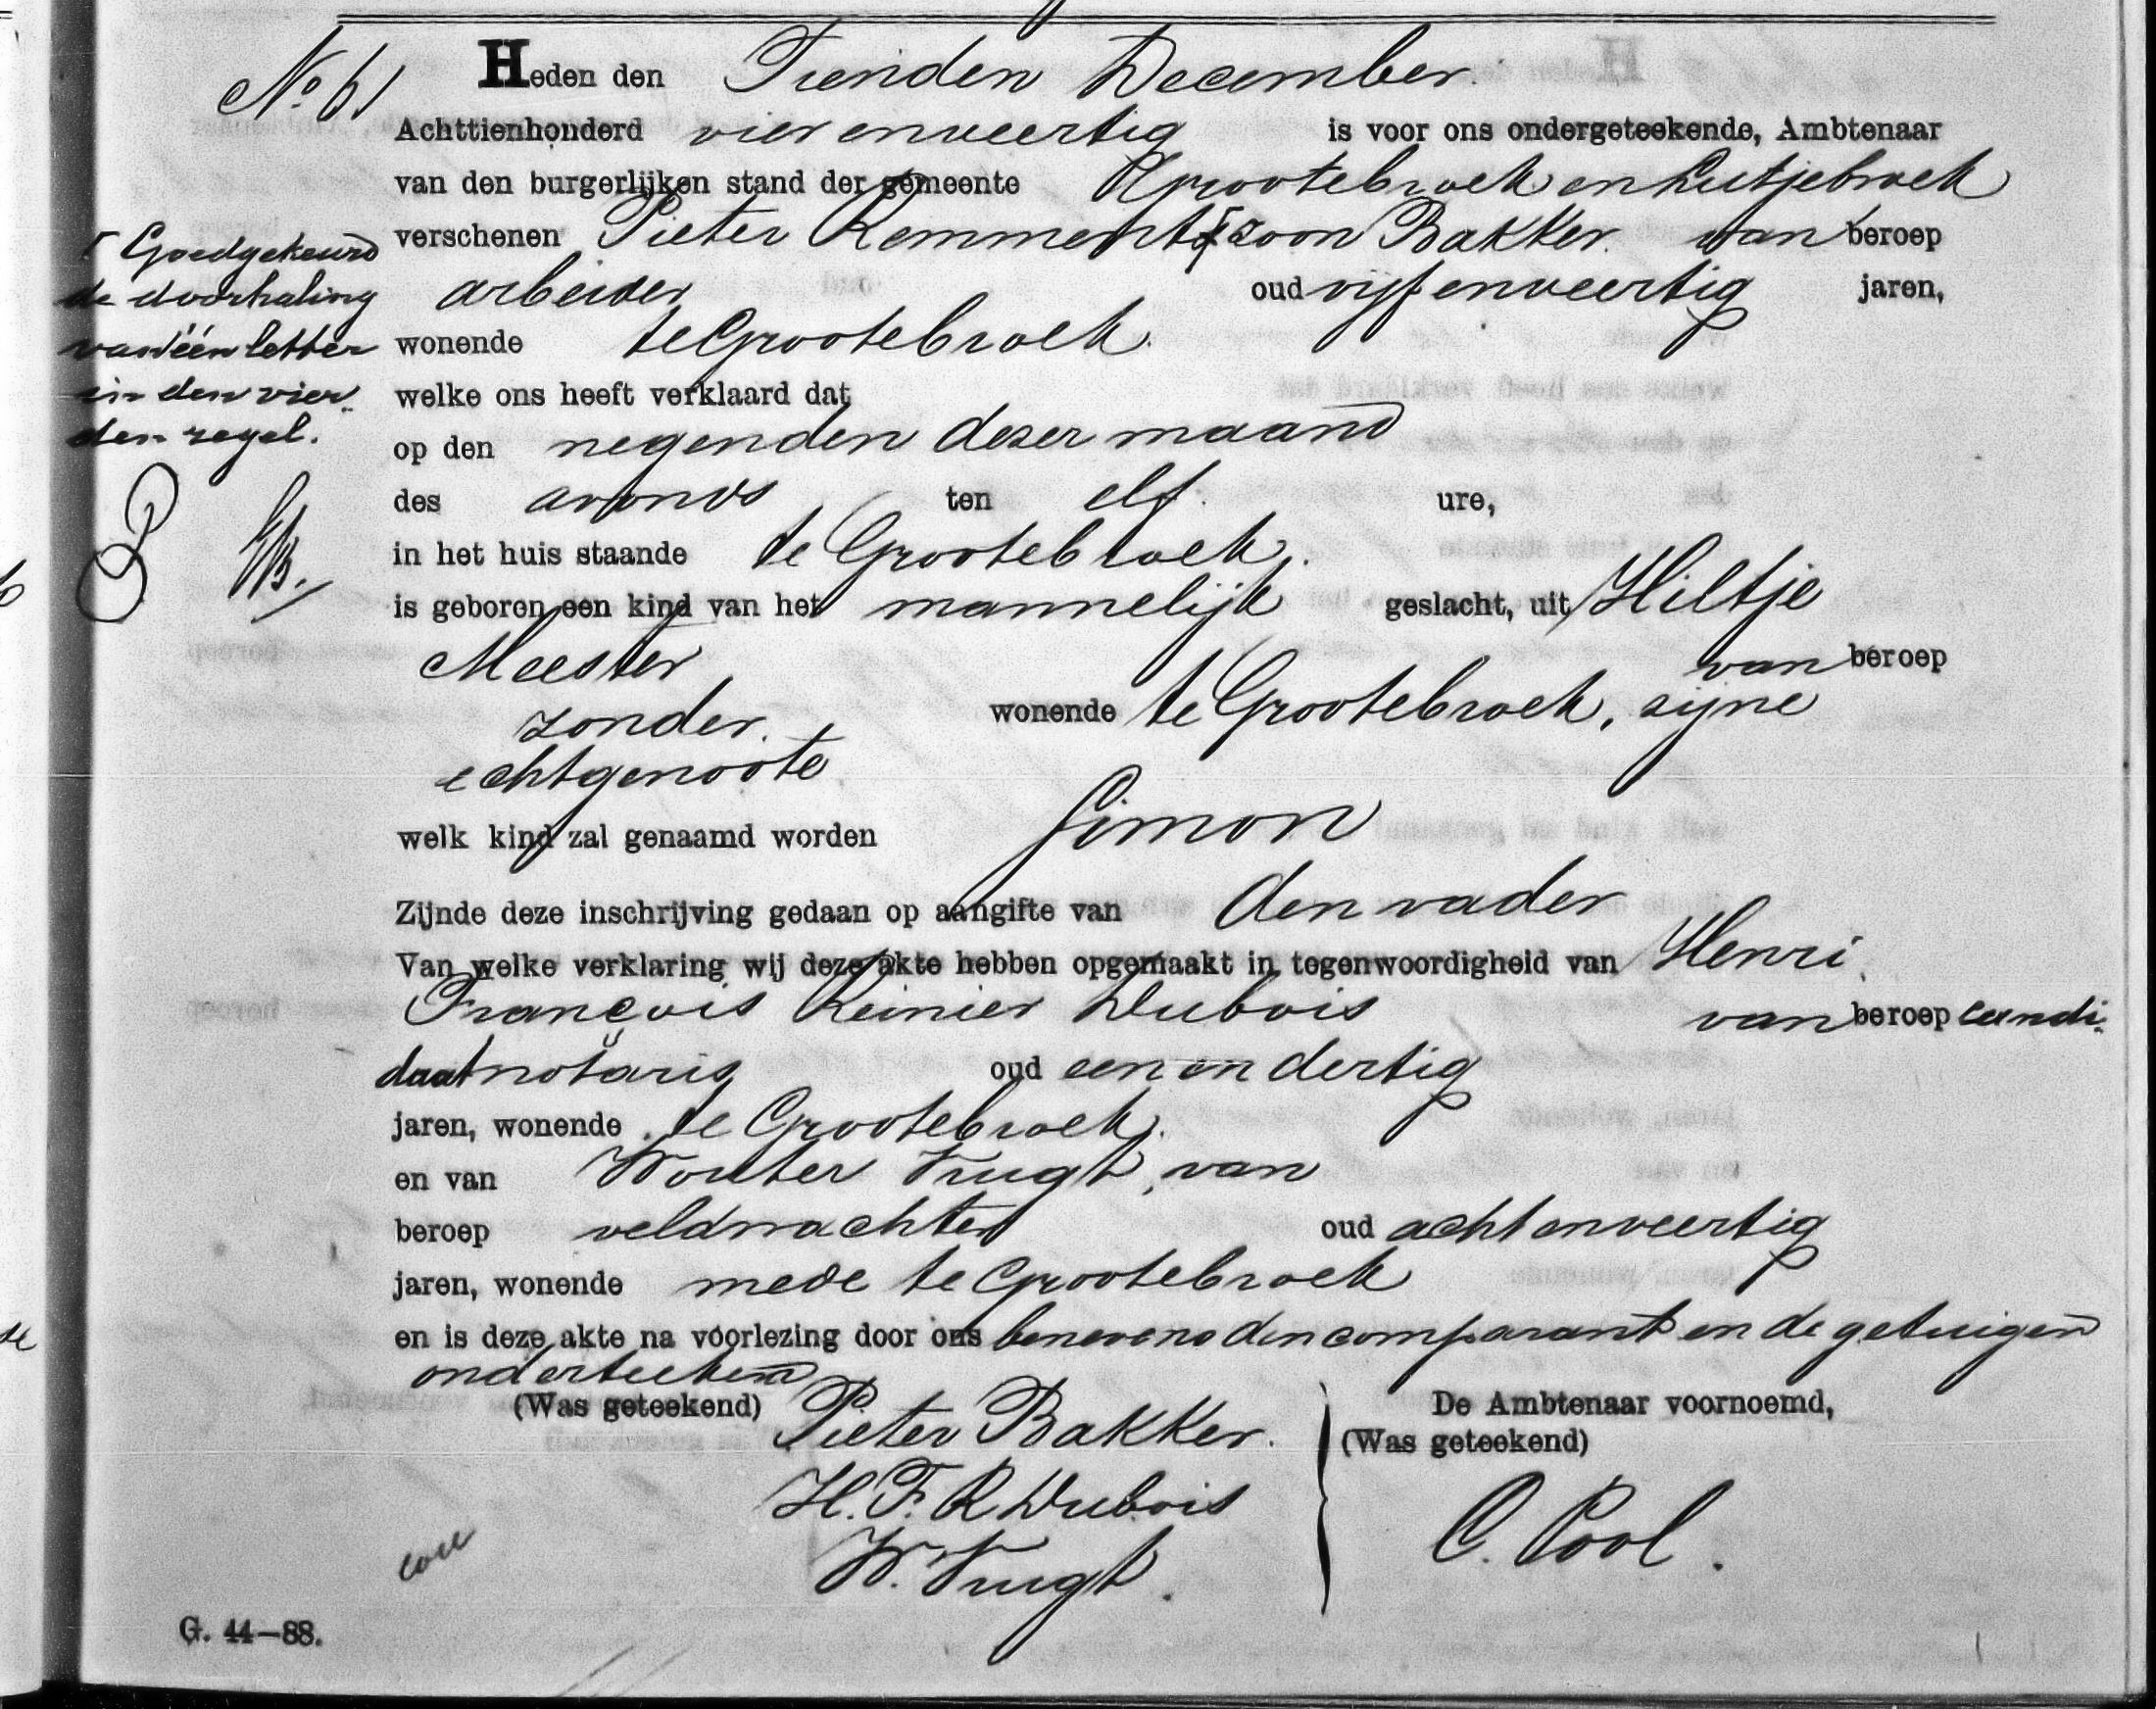 No 61
Heden den Tienden December.
Achttienhonderd vier en veertig is voor ons ondergeteekende, Ambtenaar
van den burgerlijken stand der gemeente Grootebroek en Lutjebroek
verschenen Pieter Remment zoon Bakker. van beroep
arbeider oud vijf en veertig jaren,
wonende te Grootebroek.
welke ons heeft verklaard dat
op den negenden dezer maand
des avonds ten elf. ure,
in het huis staande te Grootebroek.
is geboren een kind van het mannelijk geslacht, uit Hiltje
Meester van beroep
zonder. wonende te Grootebroek, zijne
echtgenoote
welk kind zal genaamd worden Simon
Zijnde deze inschrijving gedaan op aangifte van den vader
Van welke verklaring wij deze akte hebben opgemaakt in tegenwoordigheid van Henri
François Reinier Dubois van beroep candi-
daat notaris oud een en dertig
jaren, wonende te Grootebroek.
en van Wouter Vrugt, van
beroep veldwachter oud acht en veertig
jaren, wonende mede te Grootebroek
en is deze akte na voorlezing door ons benevens den comparant en de getuigen
onderteekend
(Was geteekend) Pieter Bakker.
H. F. R Dubois
W. Vrugt.
De Ambtenaar voornoemd,
(Was geteekend)
C. Pool.
Goedgekeurd
de doorhaling
van één letter
in den vier-
den regel.
G. 44—88.